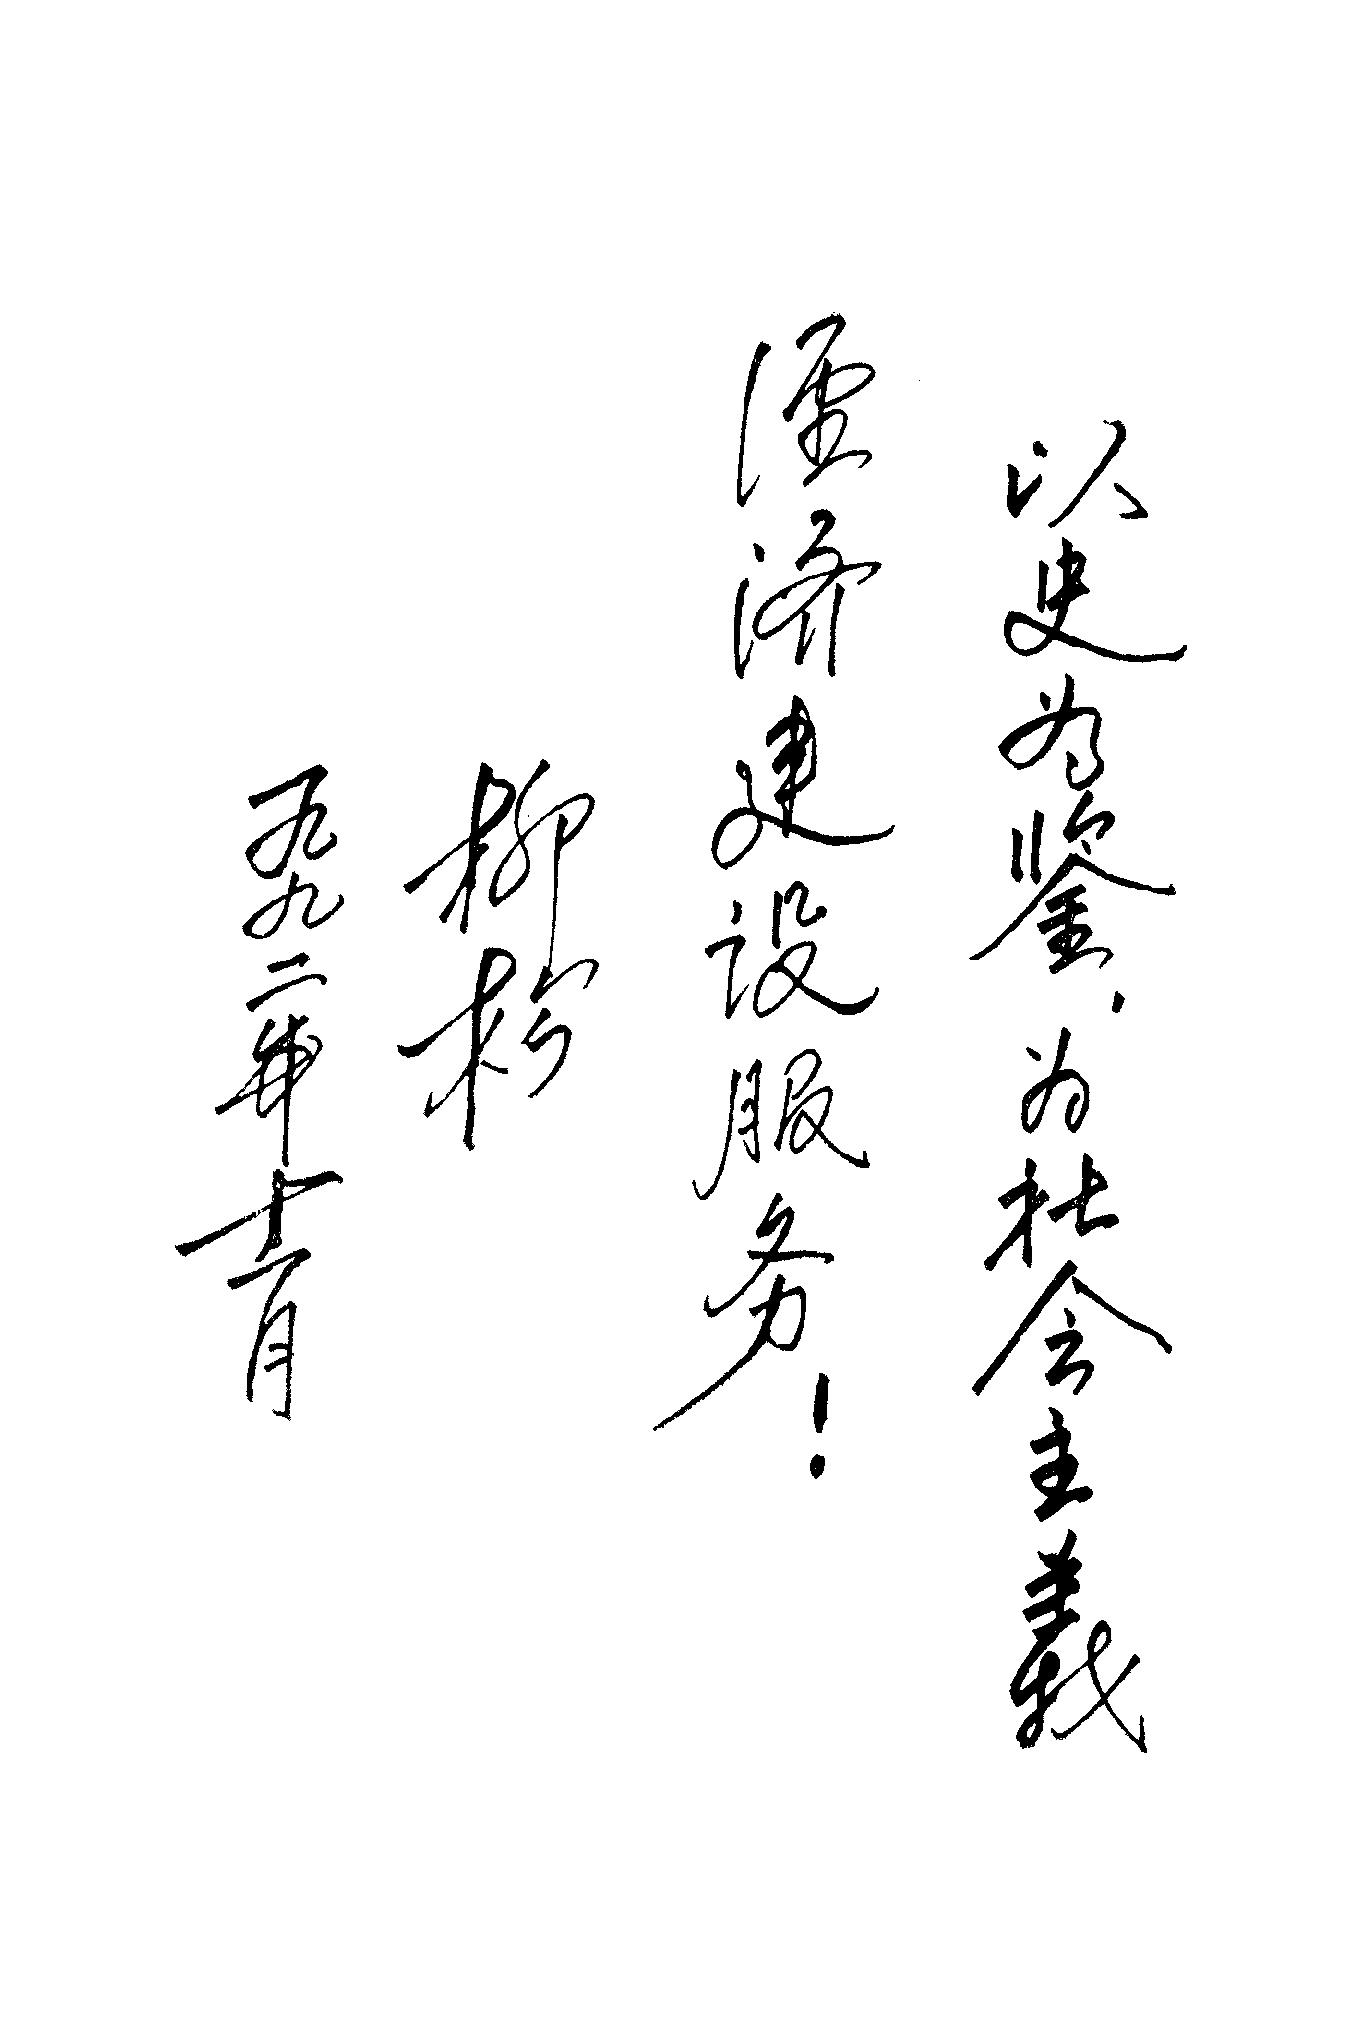 以史为鉴，为社会主义
经济建设服务！
柳松
一九九二年十二月